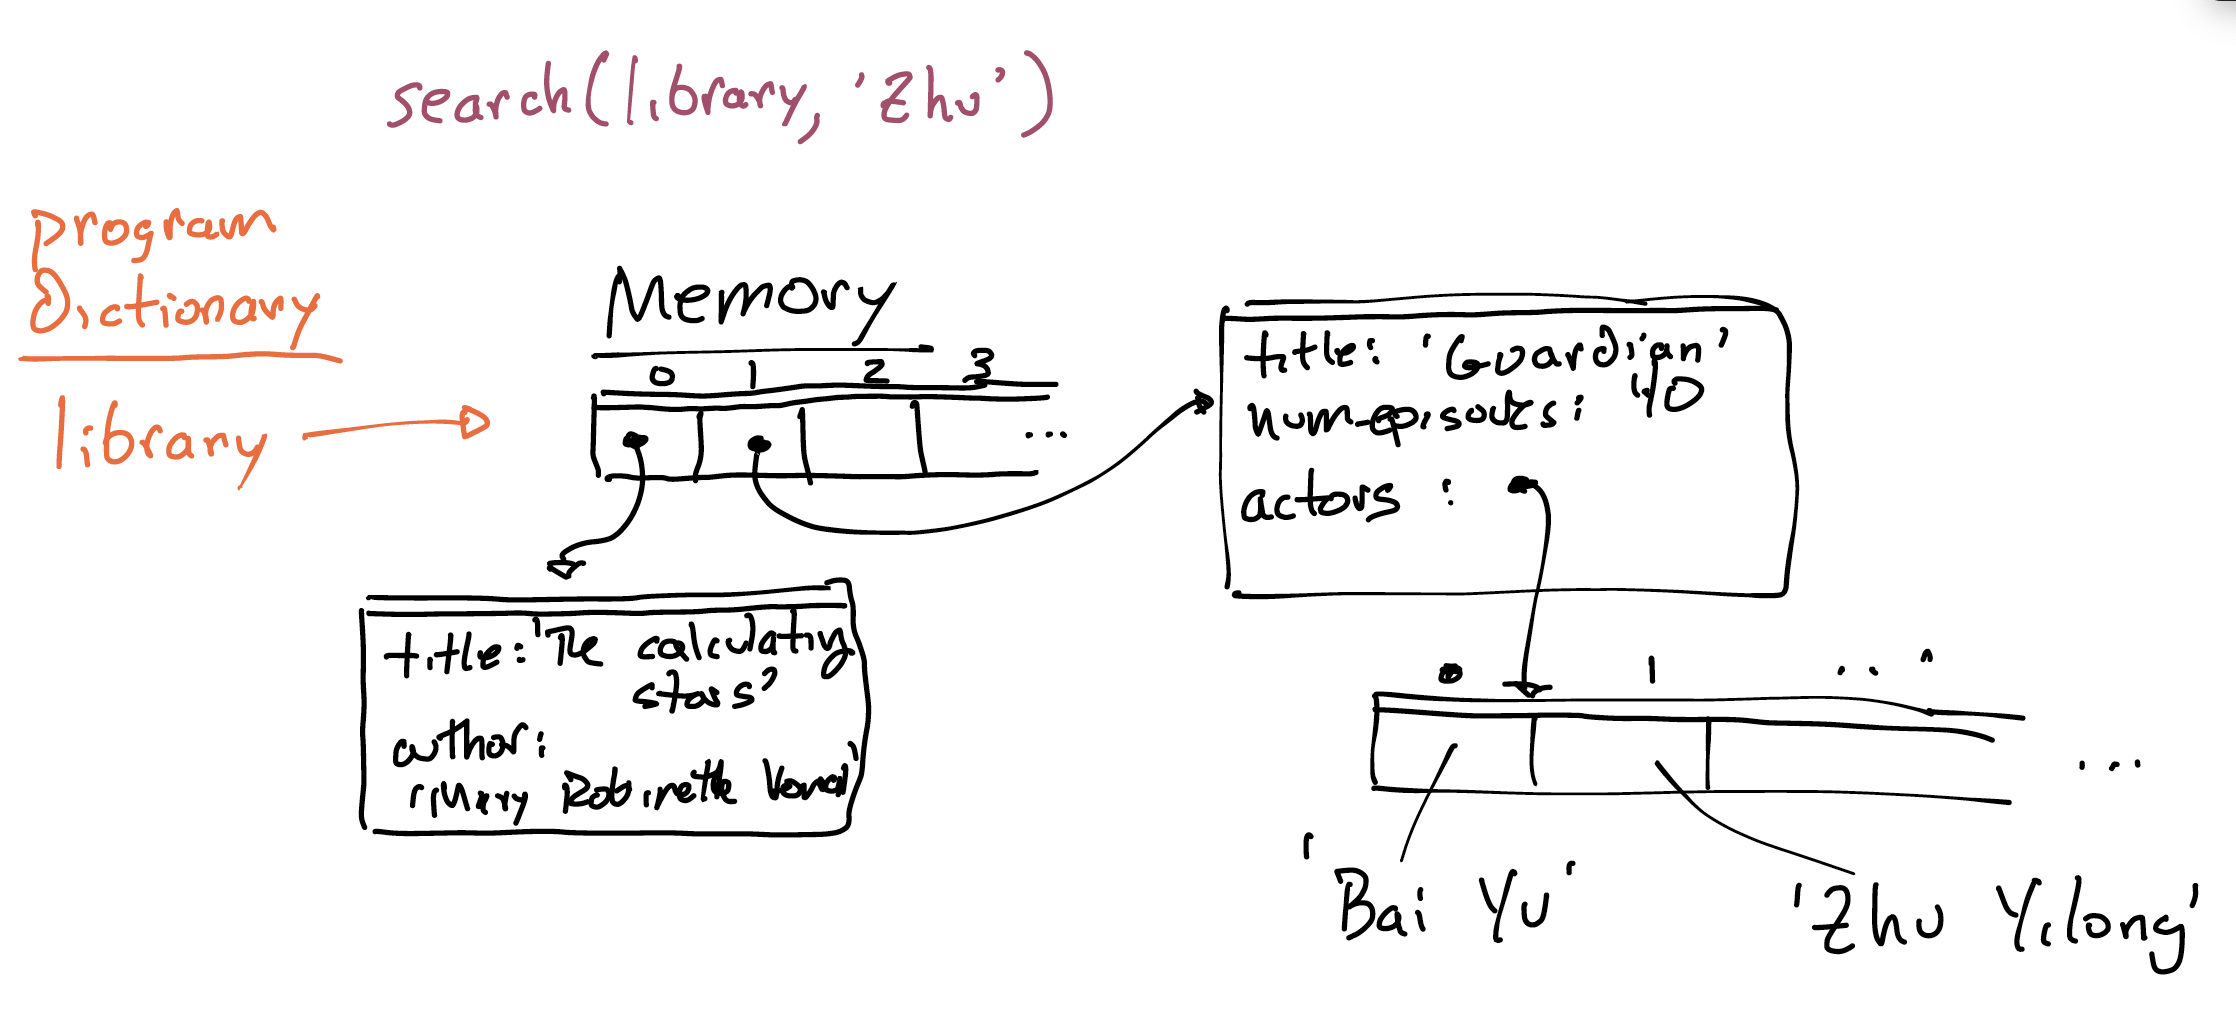 search(library, 'Zhu')
program
Dictionary
library
Memory
0 1 2 3
...
title: 'The calculating
stars'
author:
'Mary Robinette Kowal'
title: 'Guardian'
num_episodes: 40
actors :
0 1 ...
...
'Bai Yu'
'Zhu Yilong'